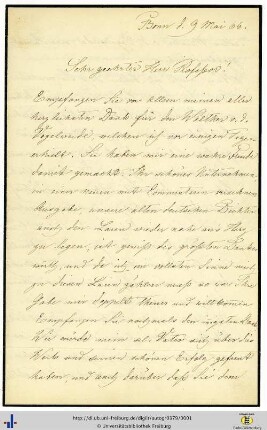 Bonn d. 9 Mai 66.
Sehr geehrter Herr Professor!
Empfangen Sie vor allem meinen aller
herzlichsten Dank für den Walther v. d.
Vogelweide, welchen ich vor einigen Tagen
erhielt. Sie haben mir eine wahre Freude
damit gemacht. Ihr schönes Unternehmen
in einer neuen mit Commentaren versehenen
Ausgabe, unsere alten deutschen Dichter
auch den Laien wieder nahe ans Herz
zu legen, ist gewiß des größten Dankes
werth, und da ich im vollsten Sinne mich
zu diesen Laien zählen muß so war Ihre
Gabe mir doppelt theuer und willkommen
Empfangen Sie nochmals den innigsten Dank
Wie würde mein sel. Vater sich über das
Werk und seinen schönen Erfolg gefreut
haben, und auch darüber daß Sie dem
http://dl.ub.uni-freiburg.de/diglit/autogr0379/0001
© Universitätsbibliothek Freiburg